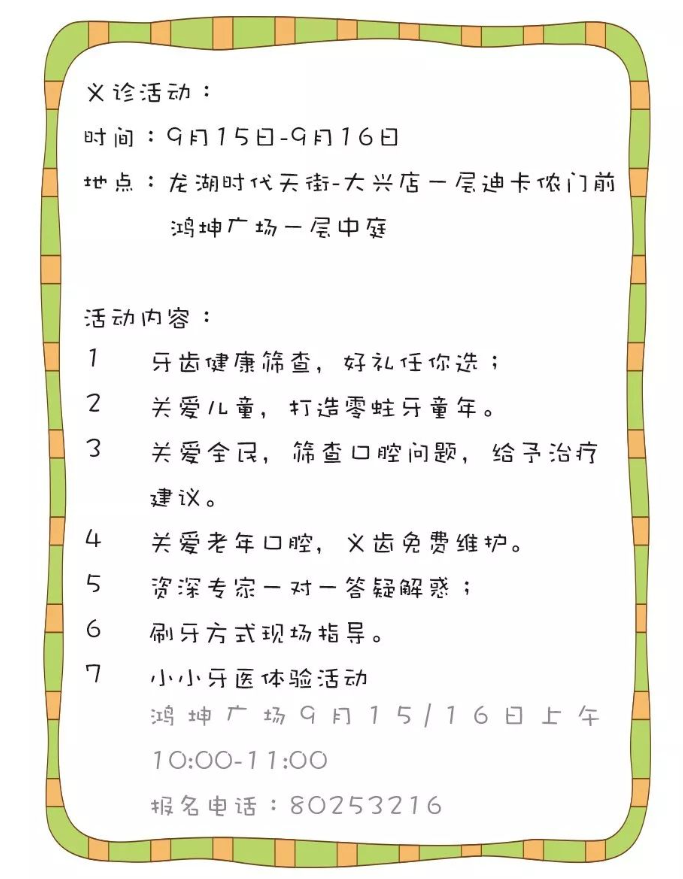 义诊活动：
时间：9月15日-9月16日
地点：龙湖时代天街-大兴店一层迪卡侬门前
鸿坤广场一层中庭
活动内容：
1 牙齿健康筛查，好礼任你选；
2 关爱儿童，打造零蛀牙童年。
3 关爱全民，筛查口腔问题，给予治疗
建议。
4 关爱老年口腔，义齿免费维护。
5 资深专家一对一答疑解惑；
6 刷牙方式现场指导。
7 小小牙医体验活动
鸿坤广场9月15/16日上午
10:00-11:00
报名电话：80253216